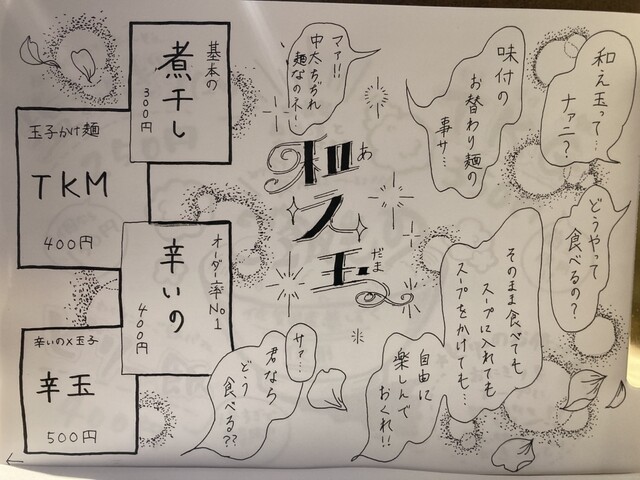 和え玉って…
ナァニ？
味付の
お替わり麺の
事サ…
マァ!!
中太ちぢれ
麺なのネー
和え玉
あ
だま
どうやって
食べるの？
そのまま食べても
スープに入れても
スープをかけても…
自由に
楽しんで
おくれ!!
サァ…
君なら
どう
食べる??
基本の
煮干し
300円
玉子かけ麺
TKM
400円
オーダー率No1
辛いの
400円
辛いの×玉子
辛玉
500円